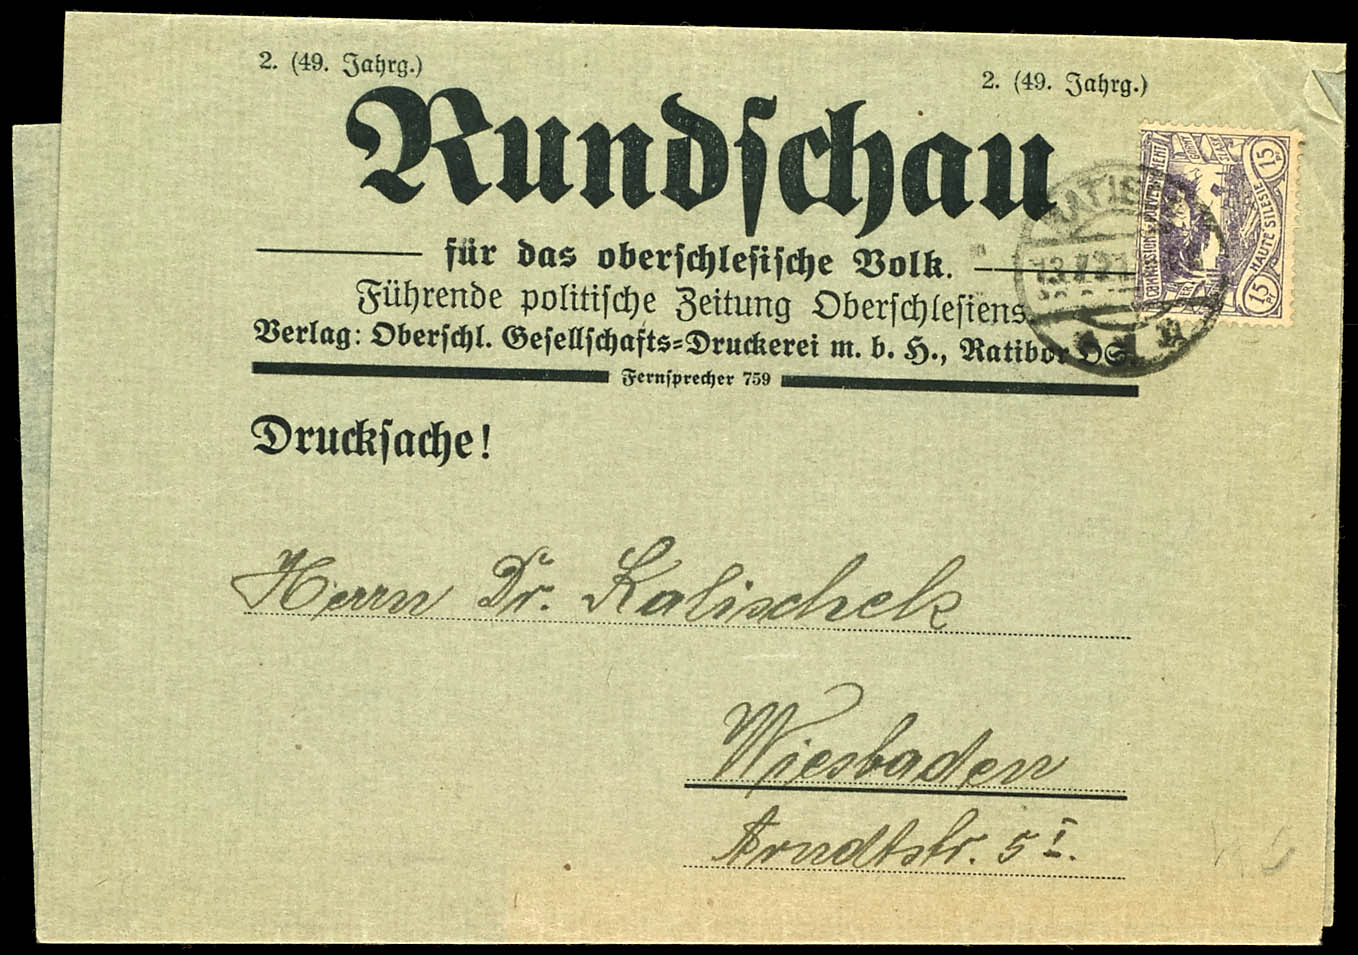 2. (49. Jahrg.) 2. (49. Jahrg.)
Rundschau
für das oberschlesische Volk.
Führende politische Zeitung Oberschlesiens
Verlag: Oberschl. Gesellschafts-Druckerei m. b. H., Ratibor OS.
Fernsprecher 759
Drucksache!
Herrn Dr. Kalischek
Wiesbaden
Arndtstr. 5 I.
COMMISSION
HAUTE SILESIE
15
15 Pf